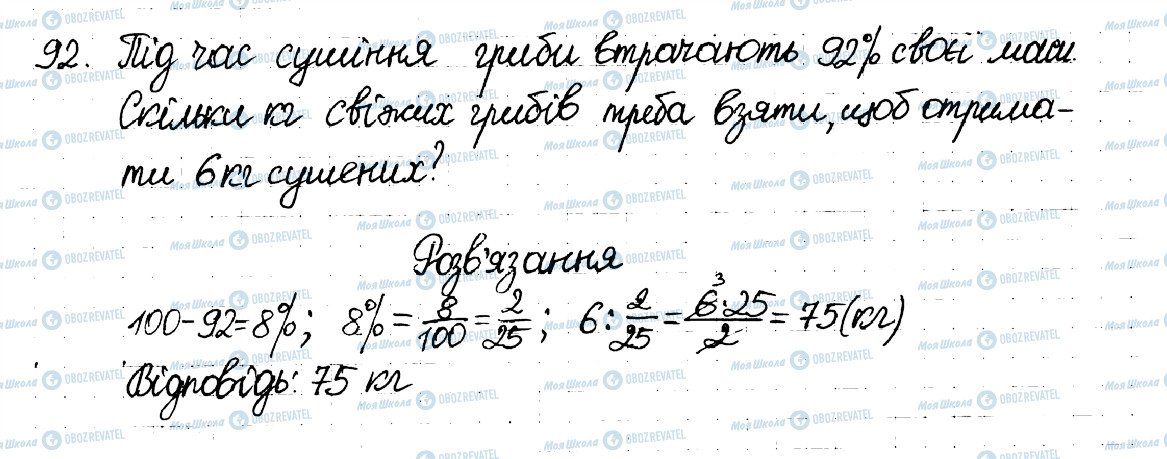 92. Під час сушіння гриби втрачають 92% своєї маси.
Скільки кг свіжих грибів треба взяти, щоб отрима-
ти 6 кг сушених?
Розв'язання
100-92=8%; 8% = 8/100 = 2/25; 6 : 2/25 = 6·25/2 = 75 (кг)
Відповідь: 75 кг